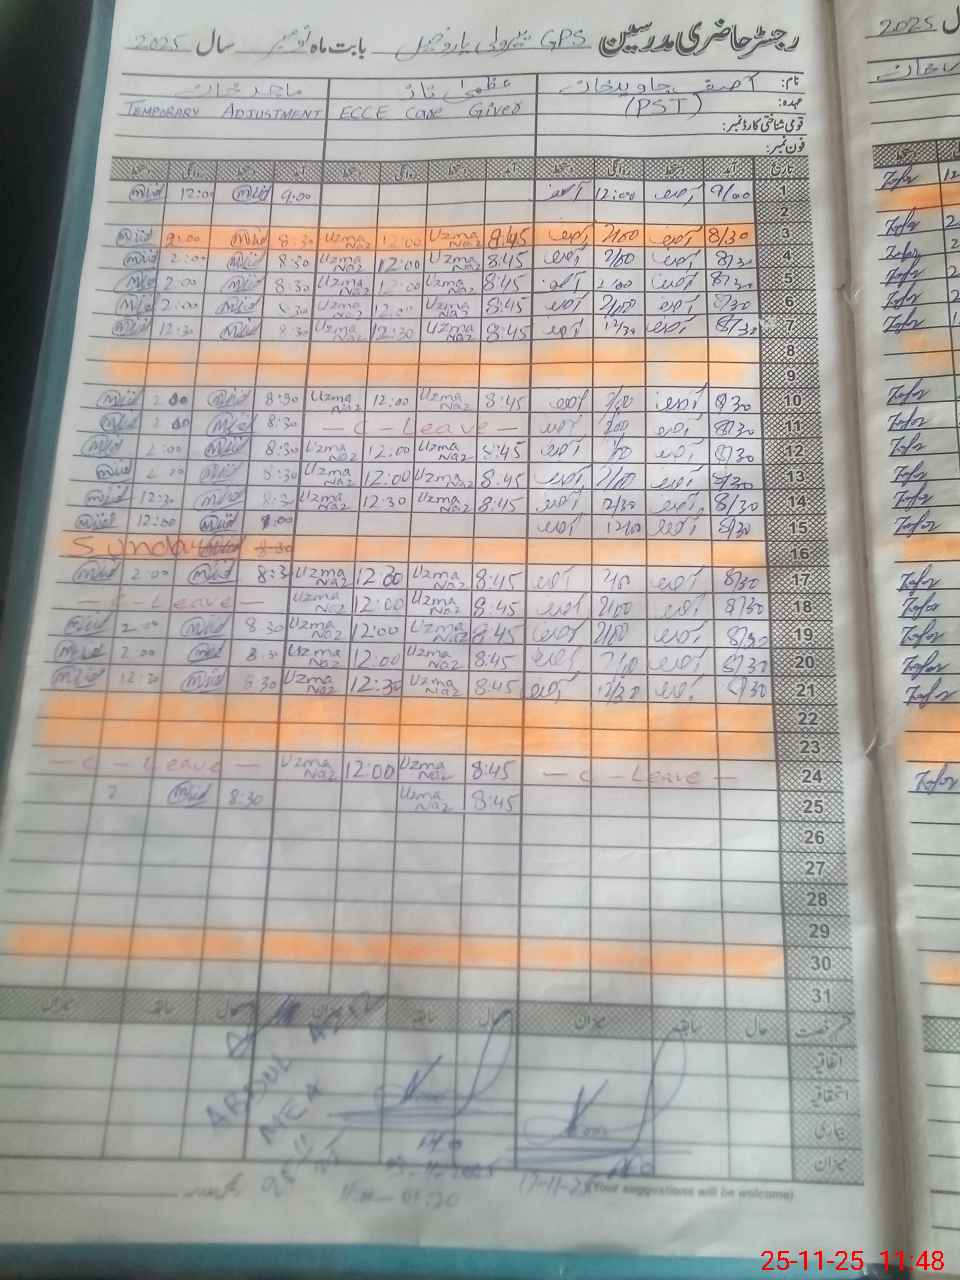 رجسٹر حاضری مدرسین GPS بابت ماہ نومبر سال 2025
نام: آصف جاوید خان عظمیٰ ناز ماجد خان
عہدہ: (PST) ECCE Care Giver TEMPORARY ADJUSTMENT
قومی شناختی کارڈ نمبر:
فون نمبر:
تاریخ آمد دستخط روانگی دستخط آمد دستخط روانگی دستخط آمد دستخط روانگی دستخط
1 9/00 آصف 12:00 آصف 9:00 Mjid 12:00 Mjid
2
3 8/30 آصف 2/00 آصف 8:45 Uzma Naz 12:00 Uzma Naz 8:30 Mjid 2:00 Mjid
4 8/30 آصف 2/00 آصف 8:45 Uzma Naz 12:00 Uzma Naz 8:30 Mjid 2:00 Mjid
5 8/30 آصف 2/00 آصف 8:45 Uzma Naz 12:00 Uzma Naz 8:30 Mjid 2:00 Mjid
6 8/30 آصف 2/00 آصف 8:45 Uzma Naz 12:00 Uzma Naz 8:30 Mjid 2:00 Mjid
7 8/30 آصف 12/30 آصف 8:45 Uzma Naz 12:30 Uzma Naz 8:30 Mjid 12:30 Mjid
8
9
10 8/30 آصف 2/00 آصف 8:45 Uzma Naz 12:00 Uzma Naz 8:30 Mjid 2:00 Mjid
11 8/30 آصف 2/00 آصف — C - Leave — 8:30 Mjid 2:00 Mjid
12 8/30 آصف 2/00 آصف 8:45 Uzma Naz 12:00 Uzma Naz 8:30 Mjid 2:00 Mjid
13 8/30 آصف 2/00 آصف 8:45 Uzma Naz 12:00 Uzma Naz 8:30 Mjid 2:00 Mjid
14 8/30 آصف 12/30 آصف 8:45 Uzma Naz 12:30 Uzma Naz 8:30 Mjid 12:30 Mjid
15 8/30 آصف 12/00 آصف 9:00 Mjid 12:00 Mjid
16 8:30 Sunday
17 8/30 آصف 2/00 آصف 8:45 Uzma Naz 12:00 Uzma Naz 8:30 Mjid 2:00 Mjid
18 8/30 آصف 2/00 آصف 8:45 Uzma Naz 12:00 Uzma Naz — C - Leave —
19 8/30 آصف 2/00 آصف 8:45 Uzma Naz 12:00 Uzma Naz 8:30 Mjid 2:00 Mjid
20 8/30 آصف 2/00 آصف 8:45 Uzma Naz 12:00 Uzma Naz 8:30 Mjid 2:00 Mjid
21 8/30 آصف 12/30 آصف 8:45 Uzma Naz 12:30 Uzma Naz 8:30 Mjid 12:30 Mjid
22
23
24 — C - Leave — 8:45 Uzma Naz 12:00 Uzma Naz — C - Leave —
25 8:45 Uzma Naz 8:30 Mjid
26
27
28
29
30
31
قسم رخصت حال سابقہ میزان حال سابقہ میزان حال سابقہ میزان
اتفاقیہ
استحقاقیہ
بیماری
میزان
ABDUL AZIZ
MEA
25-11-25
11:00 — 01:20
17-11-25
(Your suggestions will be welcome)
2025
25-11-25 11:48